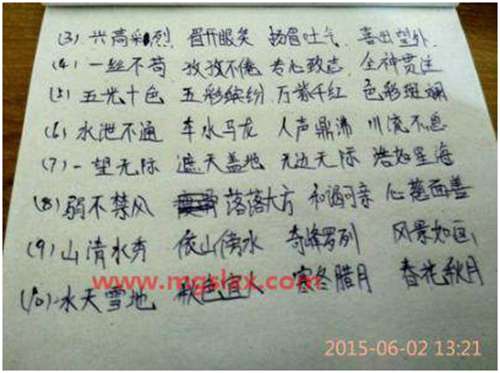 (3) 兴高彩烈 眉开眼笑 扬眉吐气 喜出望外
(4) 一丝不苟 孜孜不倦 专心致志 全神贯注
(5) 五光十色 五彩缤纷 万紫千红 色彩斑斓
(6) 水泄不通 车水马龙 人声鼎沸 川流不息
(7) 一望无际 遮天盖地 无边无际 浩如星海
(8) 弱不禁风 落落大方 和谒可亲 心慈面善
(9) 山清水秀 依山傍水 奇峰罗列 风景如画
www.mgslzx.com
(10) 水天雪地 秋色宜人 寒冬腊月 春花秋月
2015-06-02 13:21